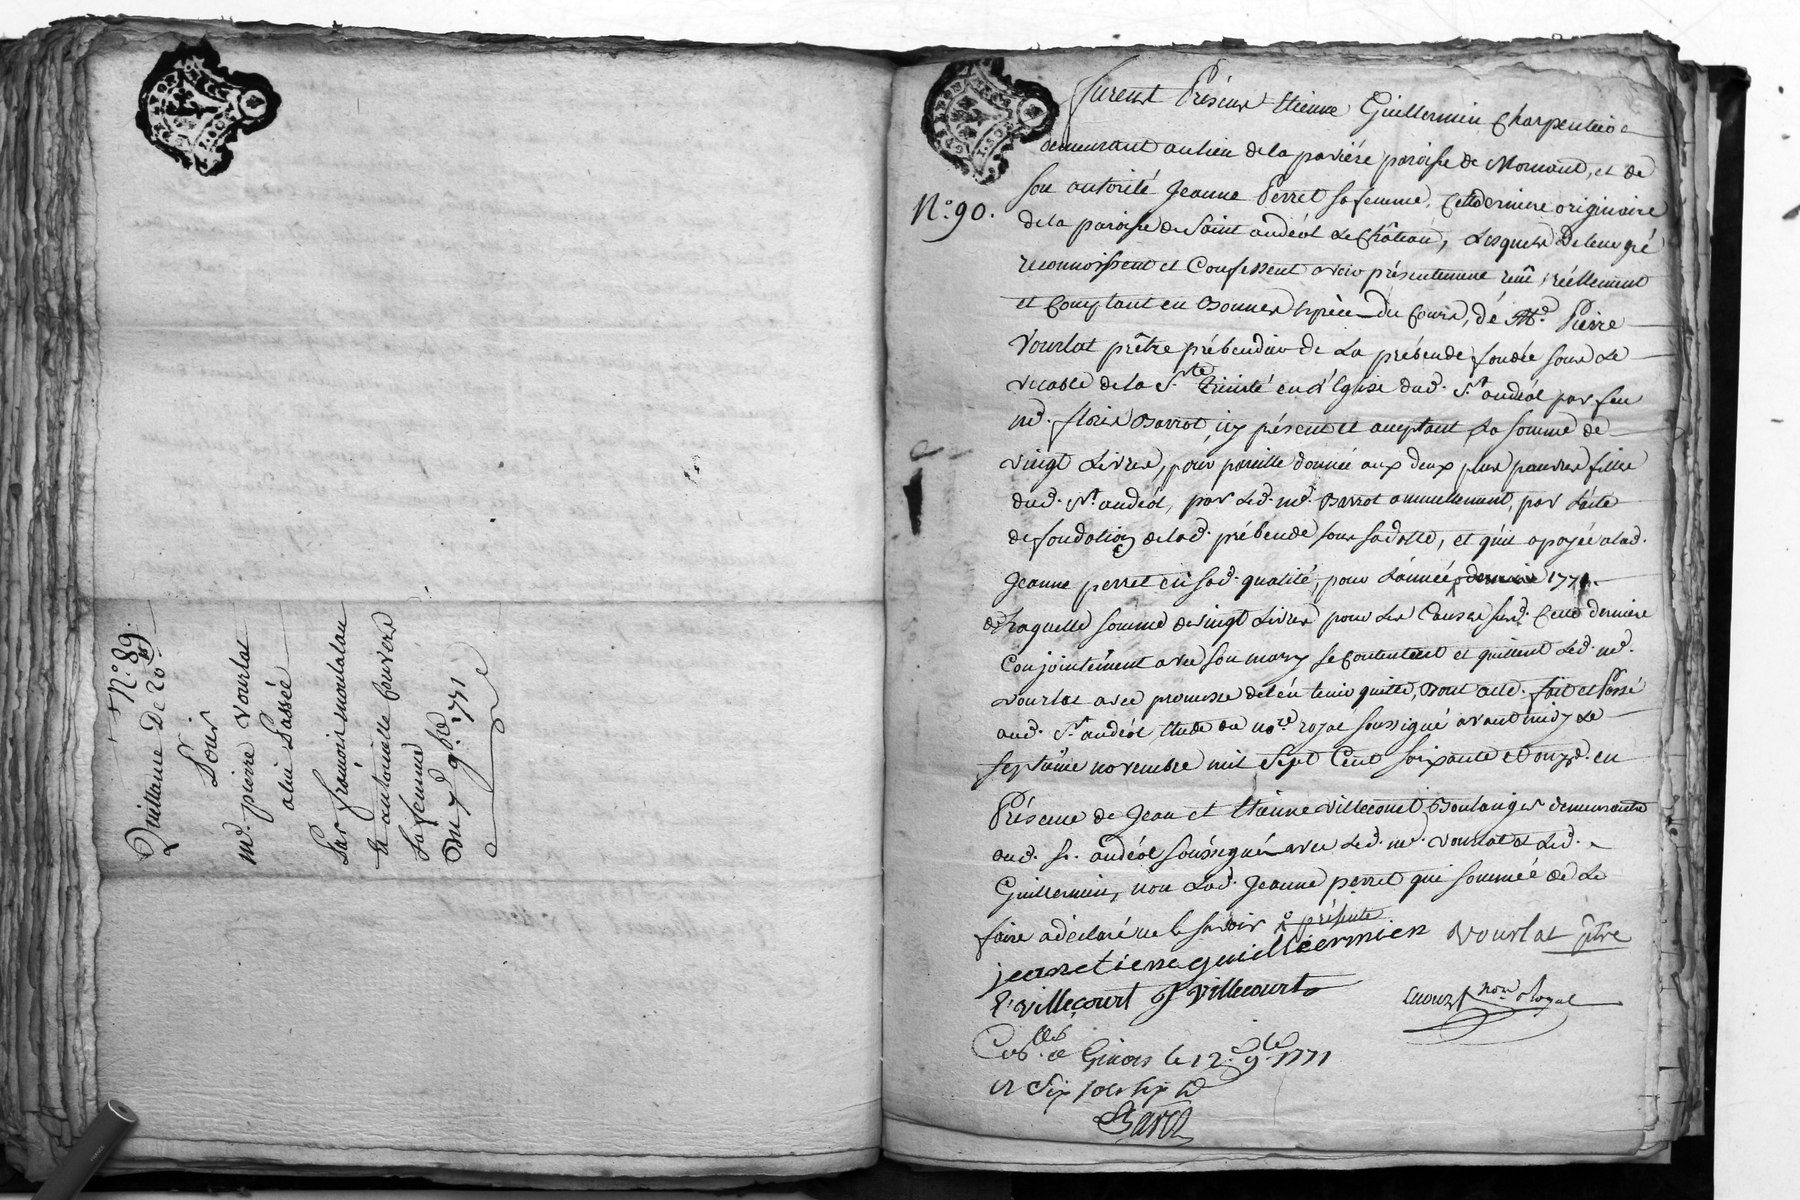 N.º 89.
Quittance De 20 #
Pour
m.e pierre vourlat
a lui Passée
Par françois moulalou
Et antoinette
Sa femme
Du 7.e 9.bre 1771
N.º 90.
furent Présens Etienne Guillermin Charpentier
demeurant au lieu de la pavière paroisse de Mornant, et de
son autorité Jeanne Perret sa femme, Cette derniere originaire
de la paroisse de Saint andéol Le Château, Lesquels De leur gré
reconnoissent et Confessent avoir présentement reçu réellement
et Comptant en Bonnes Espèces du Cours, de M.e Pierre
Vourlat prêtre prébendier de La prébende fondée sous Le
vocable de la S.te Trinité en L'église dud. S.t andéol par feu
m.e floris Barrot, icy présent et acceptant La somme de
vingt Livres, pour pareille donnée aux deux plus pauvres filles
dud. S.t andéol, par Led. m.e Barrot annuellement, par L'acte
de fondation de lad. prébende sous sa datte, et qu'il a payée a lad.
Jeanne perret en sad. qualité, pour L'année derniere 1771.
de Laquelle somme de vingt Livres pour Les Causes susd. Cette derniere
Conjointement avec son mary se Contentent et quittent Led. m.e
vourlat avec promesse de l'en tenir quitte, Dont acte. fait et Passé
aud. S.t andéol Etude du no.re royal soussigné avant midy Le
septième novembre mil Sept Cent soixante et onze. en
Présence de Jean et Etienne Villecourt Boulangers demeurants
aud. S.t andéol soussignés avec Led. m.e vourlat et Led.
Guillermin, non Lad. Jeanne perret qui sommée de Le
faire a déclaré ne le savoir présente
jean etienne guilliermien Vourlat ptre
E. villecourt J villecourt
nore Royal
Con.lle a Givors le 12.e 9.bre 1771
R Six sols six d.